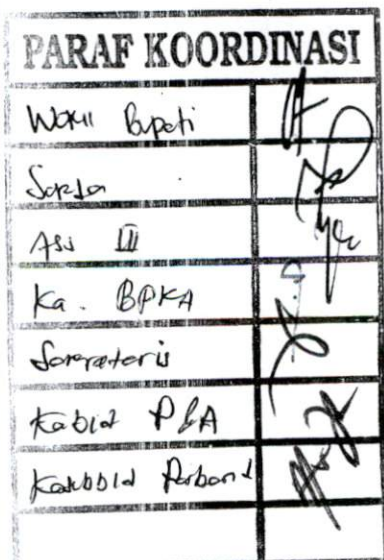 PARAF KOORDINASI
Wakil Bupati
Sekda
Ass III
Ka. BPKA
Sekretaris
Kabid P&A
Kasubbid